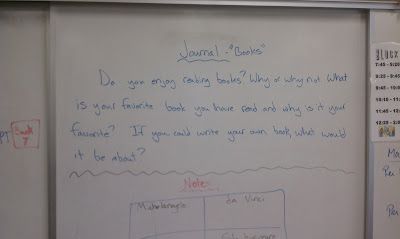 Journal - "Books"
Do you enjoy reading books? Why or why not What
is your favorite book you have read and why is it your
favorite? If you could write your own book, what would
it be about?
Notes
Michelangelo
Da Vinci
BLOCK
7:45 - 9:20